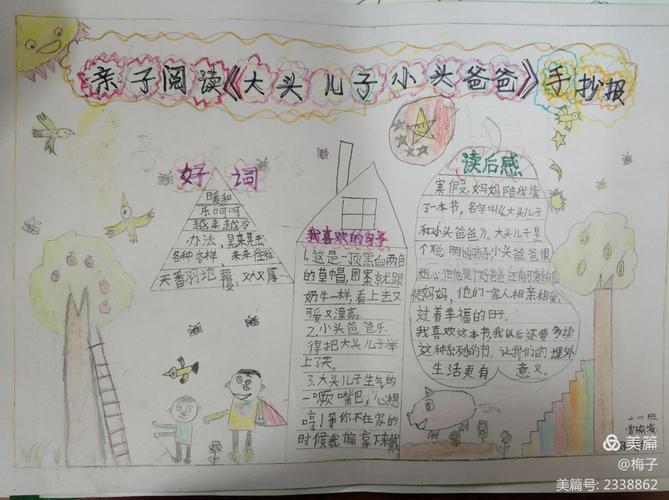 亲子阅读《大头儿子小头爸爸》手抄报
好词
暖和
乐呵呵
越来越冷
办法,晃来晃去
各种各样,来来往往
天番羽地覆,又大又厚
我喜欢的句子
1.这是一顶黑白两色
的草帽,图案就跟
奶牛一样,看上去又
可爱又漂亮。
2.小头爸爸乐
得把大头儿子举
上了天。
3.大头儿子生气的
一噘嘴巴,心想
哼!等你不在家的
时候我偏拿下来戴
读后感
寒假,妈妈陪我读
了一本书,名字叫《大头儿子
和小头爸爸》。大头儿子是
个聪明的孩子,小头爸爸很
粗心,但他是个好爸爸,还有可爱的围
裙妈妈,他们一家人相亲相爱,
过着幸福的日子。
我喜欢这本书,我以后还要多读
这种系列的书,让我们的课外
生活更有意义。
美篇
@梅子
美篇号: 2338862